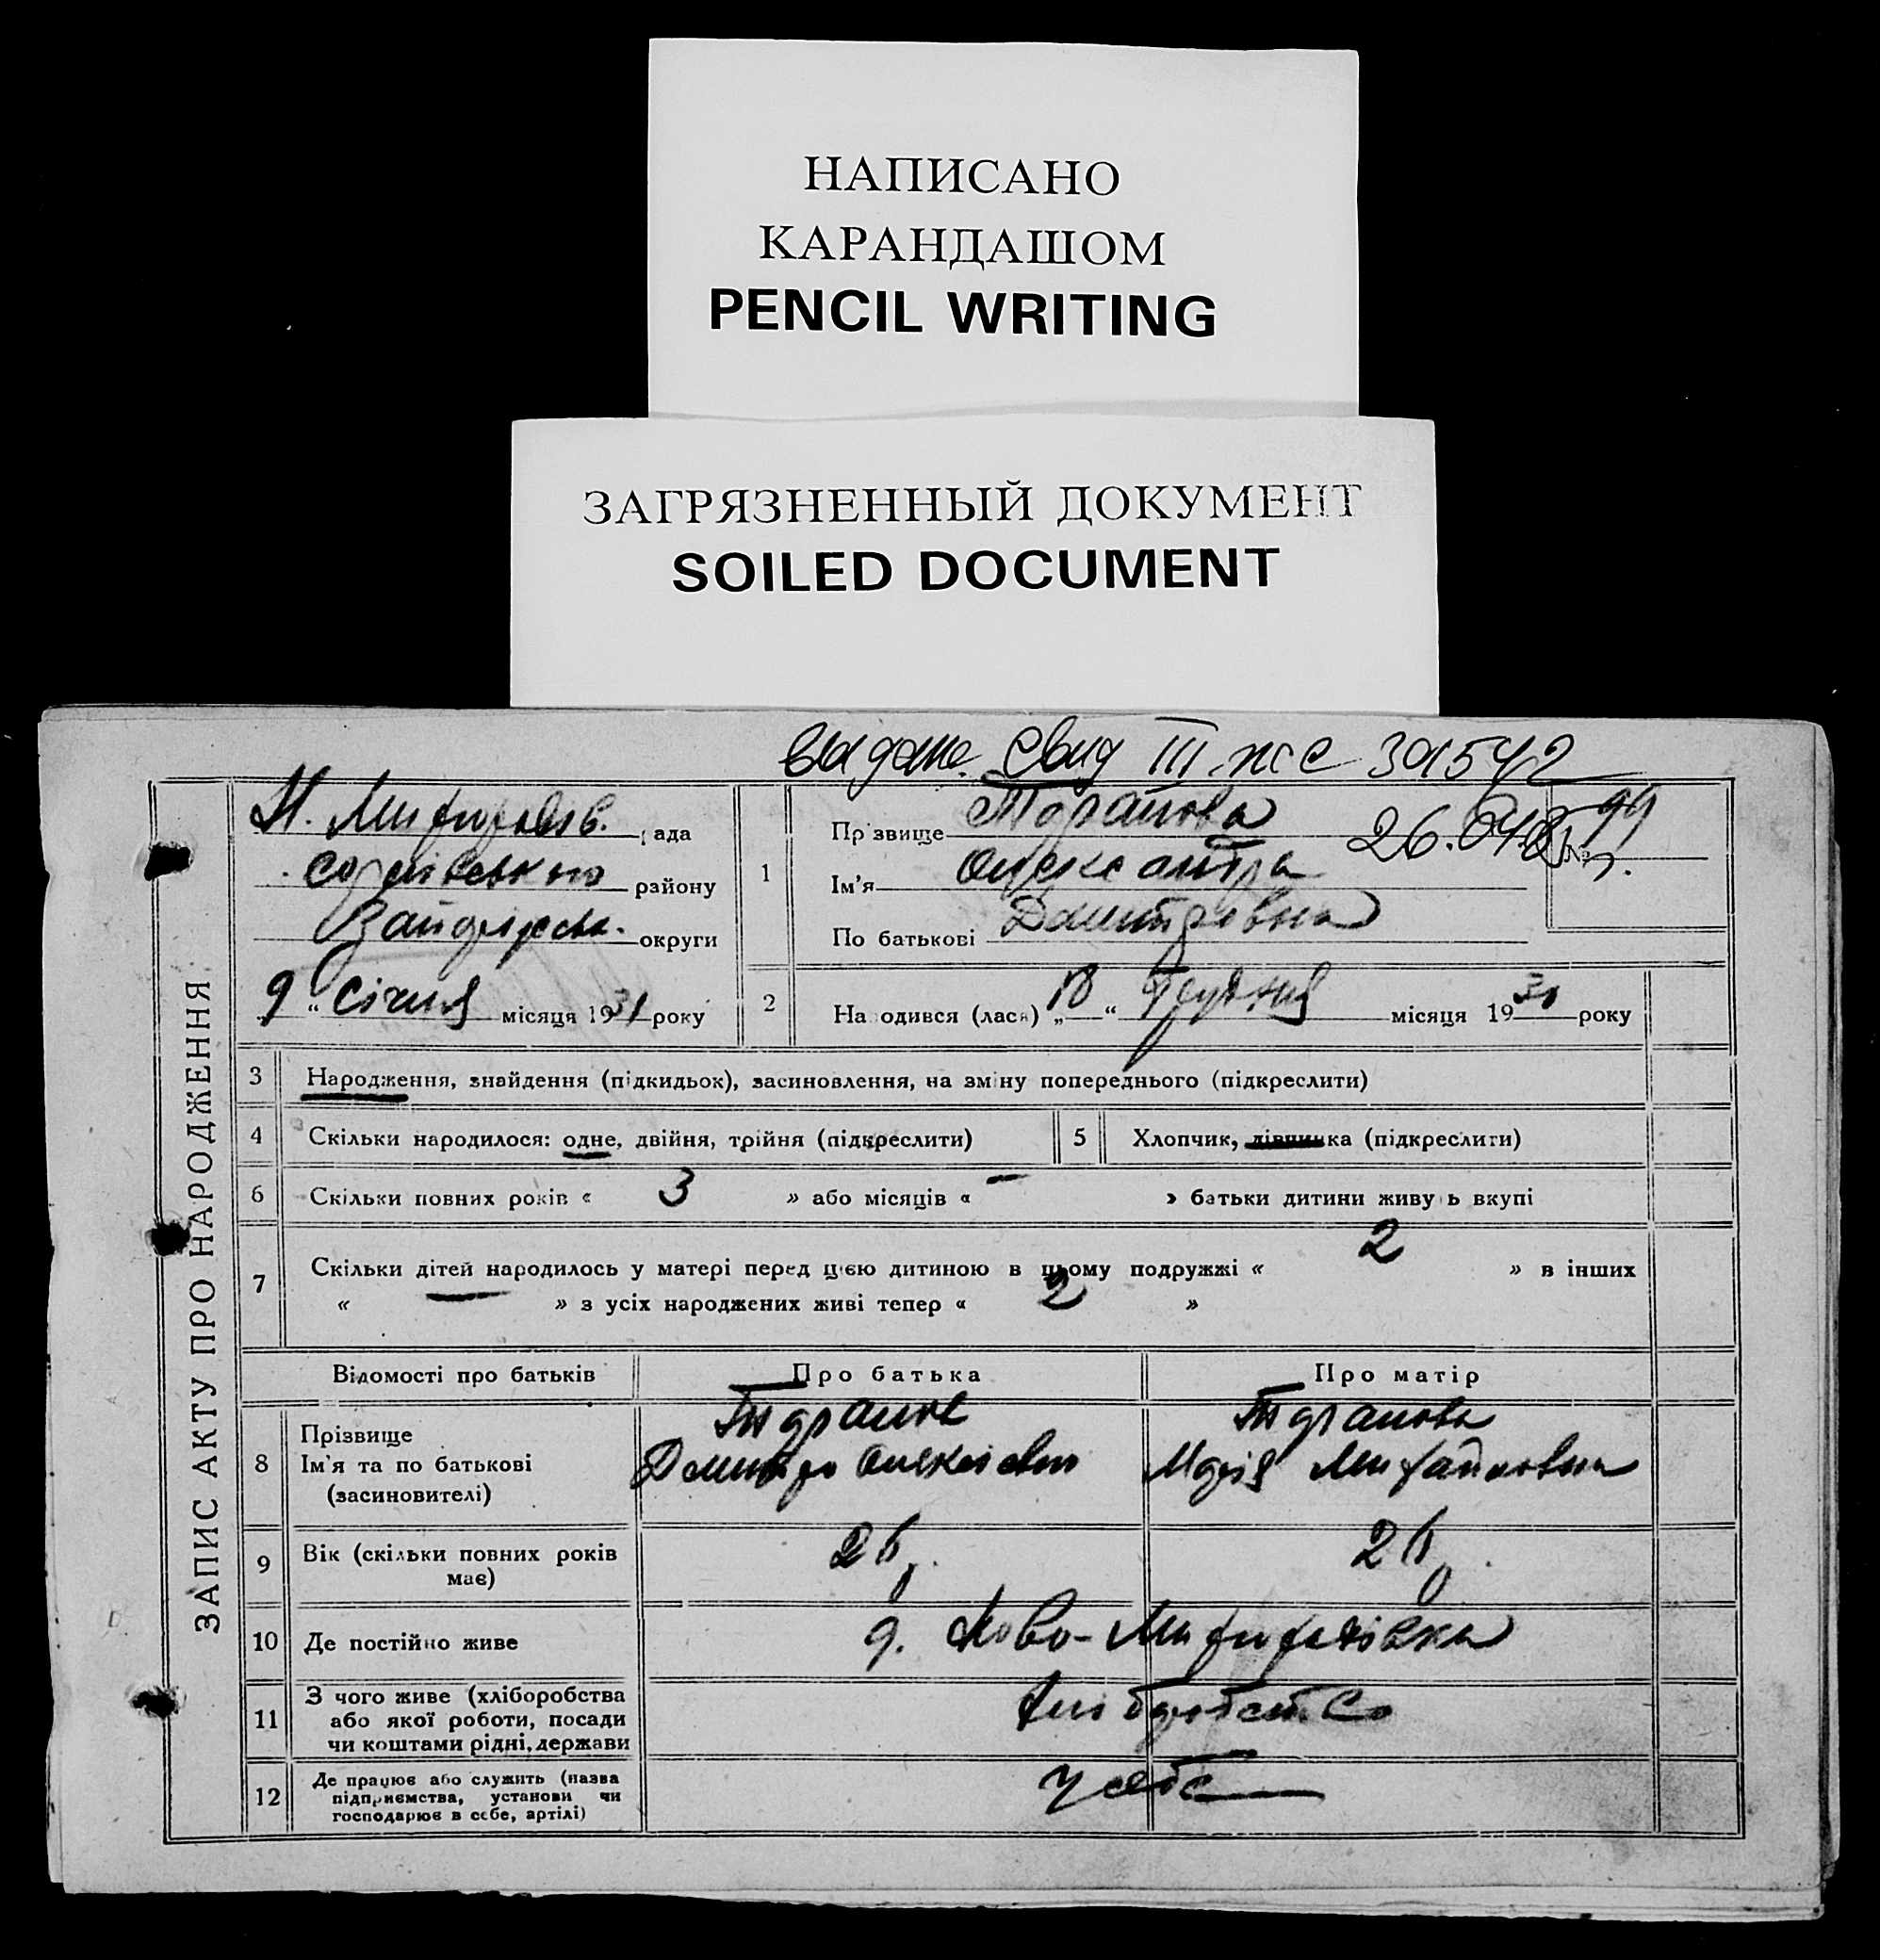 НАПИСАНО
КАРАНДАШОМ
PENCIL WRITING
ЗАГРЯЗНЕННЫЙ ДОКУМЕНТ
SOILED DOCUMENT
III
ЗАПИС АКТУ ПРО НАРОДЖЕННЯ
Н. рада
району
округи
9 " Січня місяця 1931 року
1
Прізвище Таранова
Ім'я Олександра
По батькові Дмитровна
26.04.
№ 99
2
Народився (лась) „18 “ Грудня місяця 1930 року
3 Народження, знайдення (підкидьок), засиновлення, на зміну попереднього (підкреслити)
4 Скільки народилося: одне, двійня, трійня (підкреслити)
5 Хлопчик, дівчинка (підкреслити)
6 Скільки повних років « 3 » або місяців « — » батьки дитини живуть вкупі
7 Скільки дітей народилось у матері перед цією дитиною в цьому подружжі « 2 » в інших
« — » з усіх народжених живі тепер « 2 »
Відомості про батьків Про батька Про матір
8 Прізвище
Ім'я та по батькові
(засиновителі)
Таранов
Дмитро
Таранова
Марія Михайловна
9 Вік (скільки повних років
має)
26
26
10 Де постійно живе
11 З чого живе (хліборобства
або якої роботи, посади
чи коштами рідні, держави
Хліборобство
12 Де працює або служить (назва
підприємства, установи чи
господарює в себе, артілі)
У себе